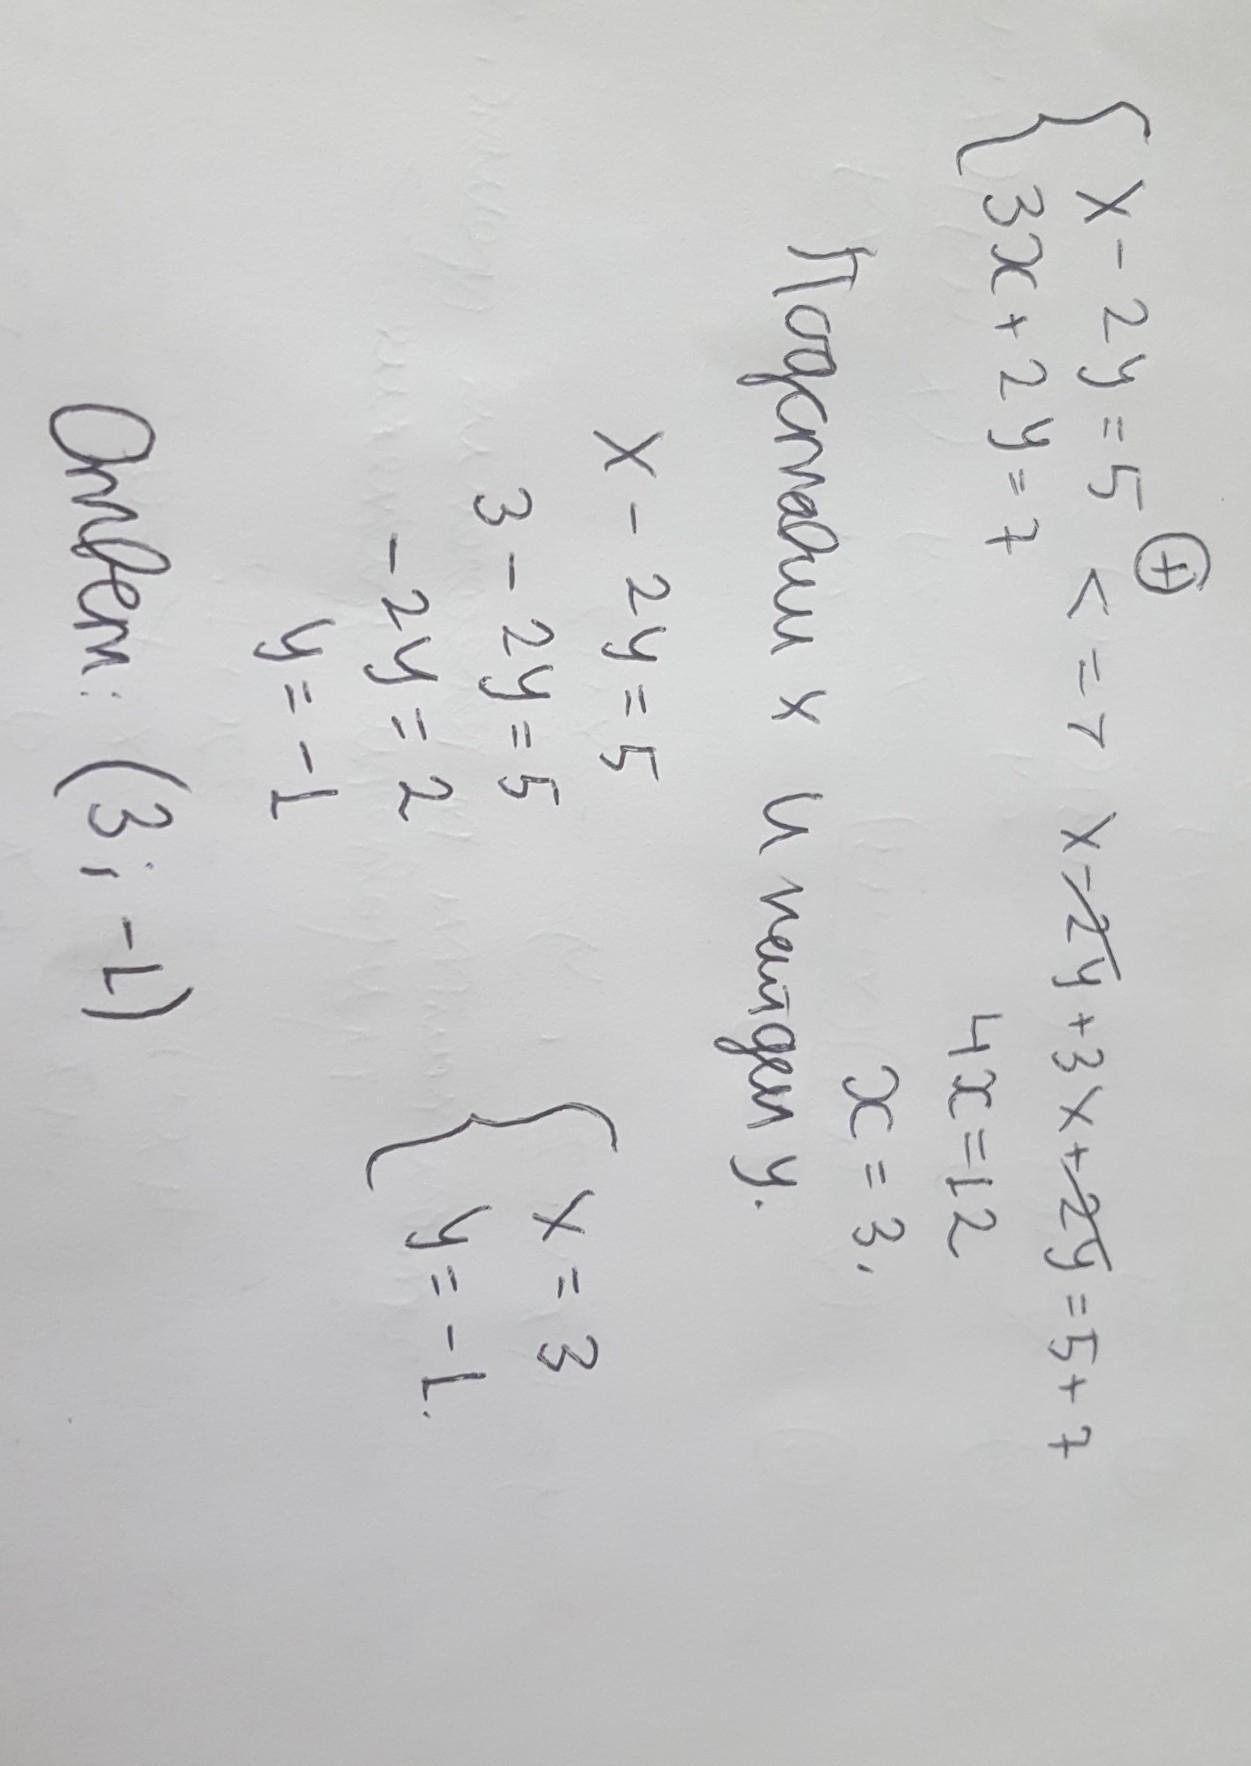 { x - 2y = 5 (+) <=> x - 2y + 3x + 2y = 5 + 7
3x + 2y = 7
4x = 12
x = 3.
Подставим x и найдем y.
x - 2y = 5
3 - 2y = 5
-2y = 2
y = -1
{ x = 3
y = -1.
Ответ: (3; -1)